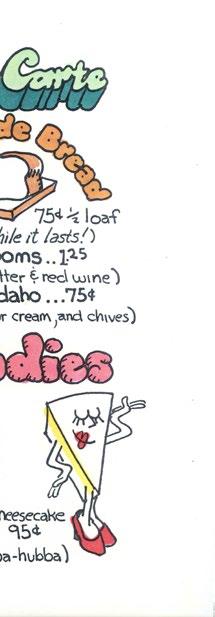 Carte
de Bread
75¢ ½ loaf
hile it lasts!)
oms..1.25
tter & red wine)
daho...75¢
r cream, and chives)
odies
heesecake
95¢
ba-hubba)